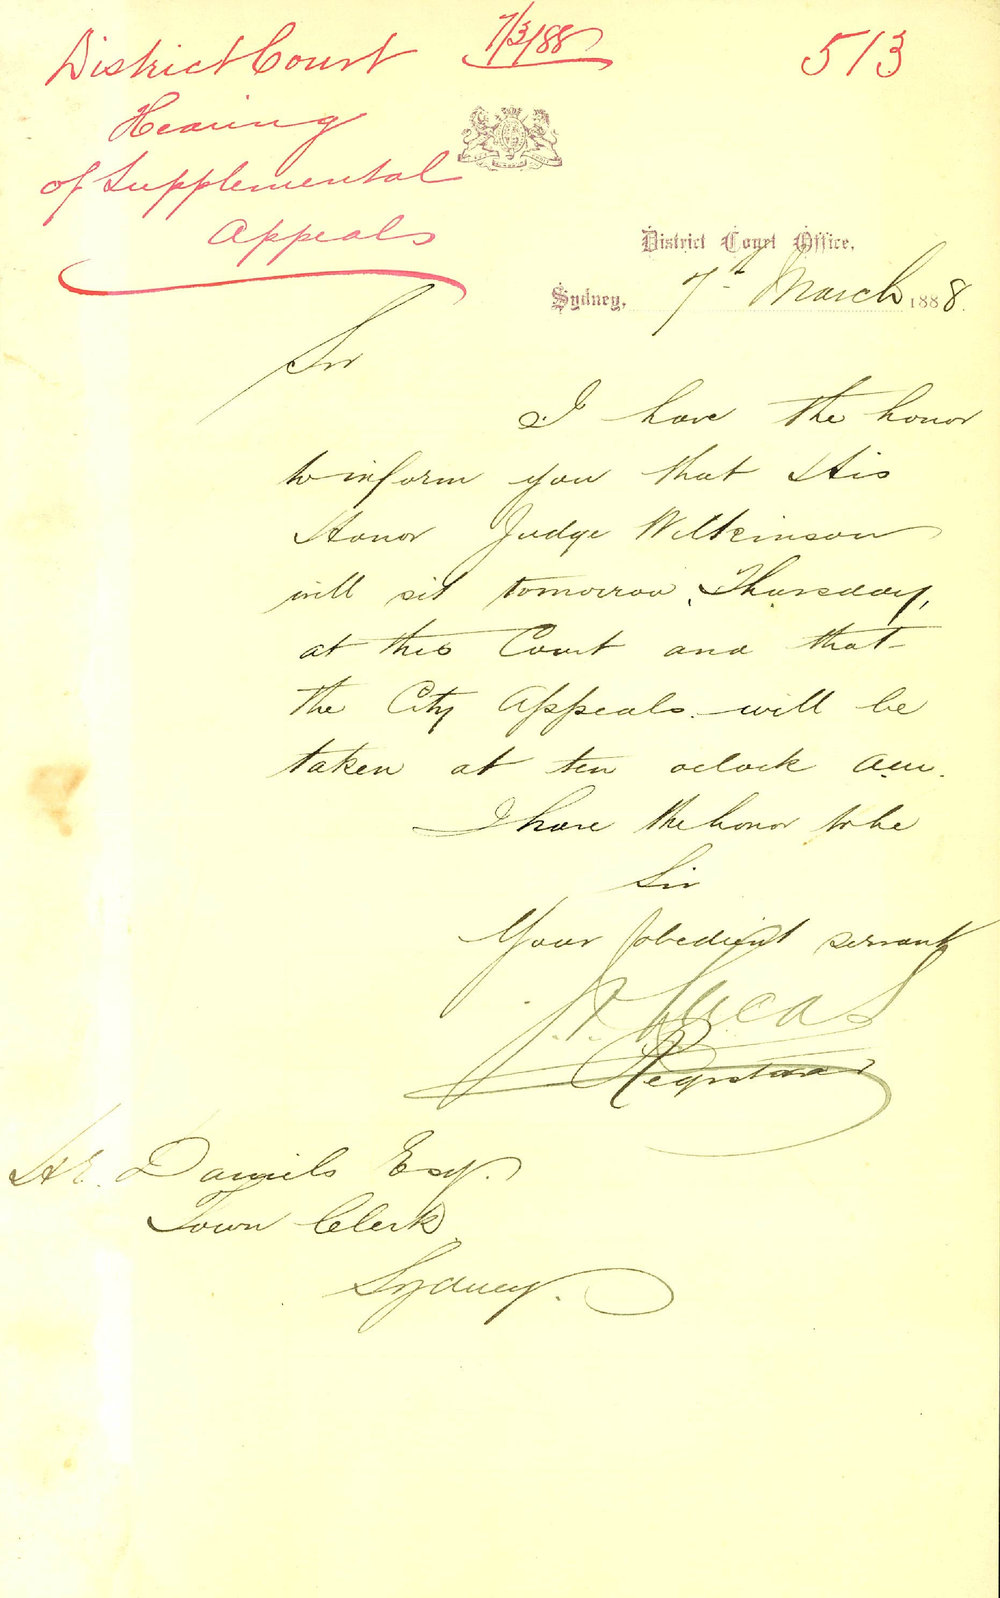 District Court
7/3/88
513
Hearing
of Supplemental
Appeals
District Court Office.
Sydney, 7th March 1888.
Sir
I have the honor
to inform you that His
Honor Judge Wilkinson
will sit tomorrow, Thursday,
at this Court and that
the City Appeals will be
taken at ten oclock a.m.
I have the honor to be
Sir
Your obedient servant
Lucas
Registrar
H.E. Daniels Esq.
Town Clerk
Sydney.